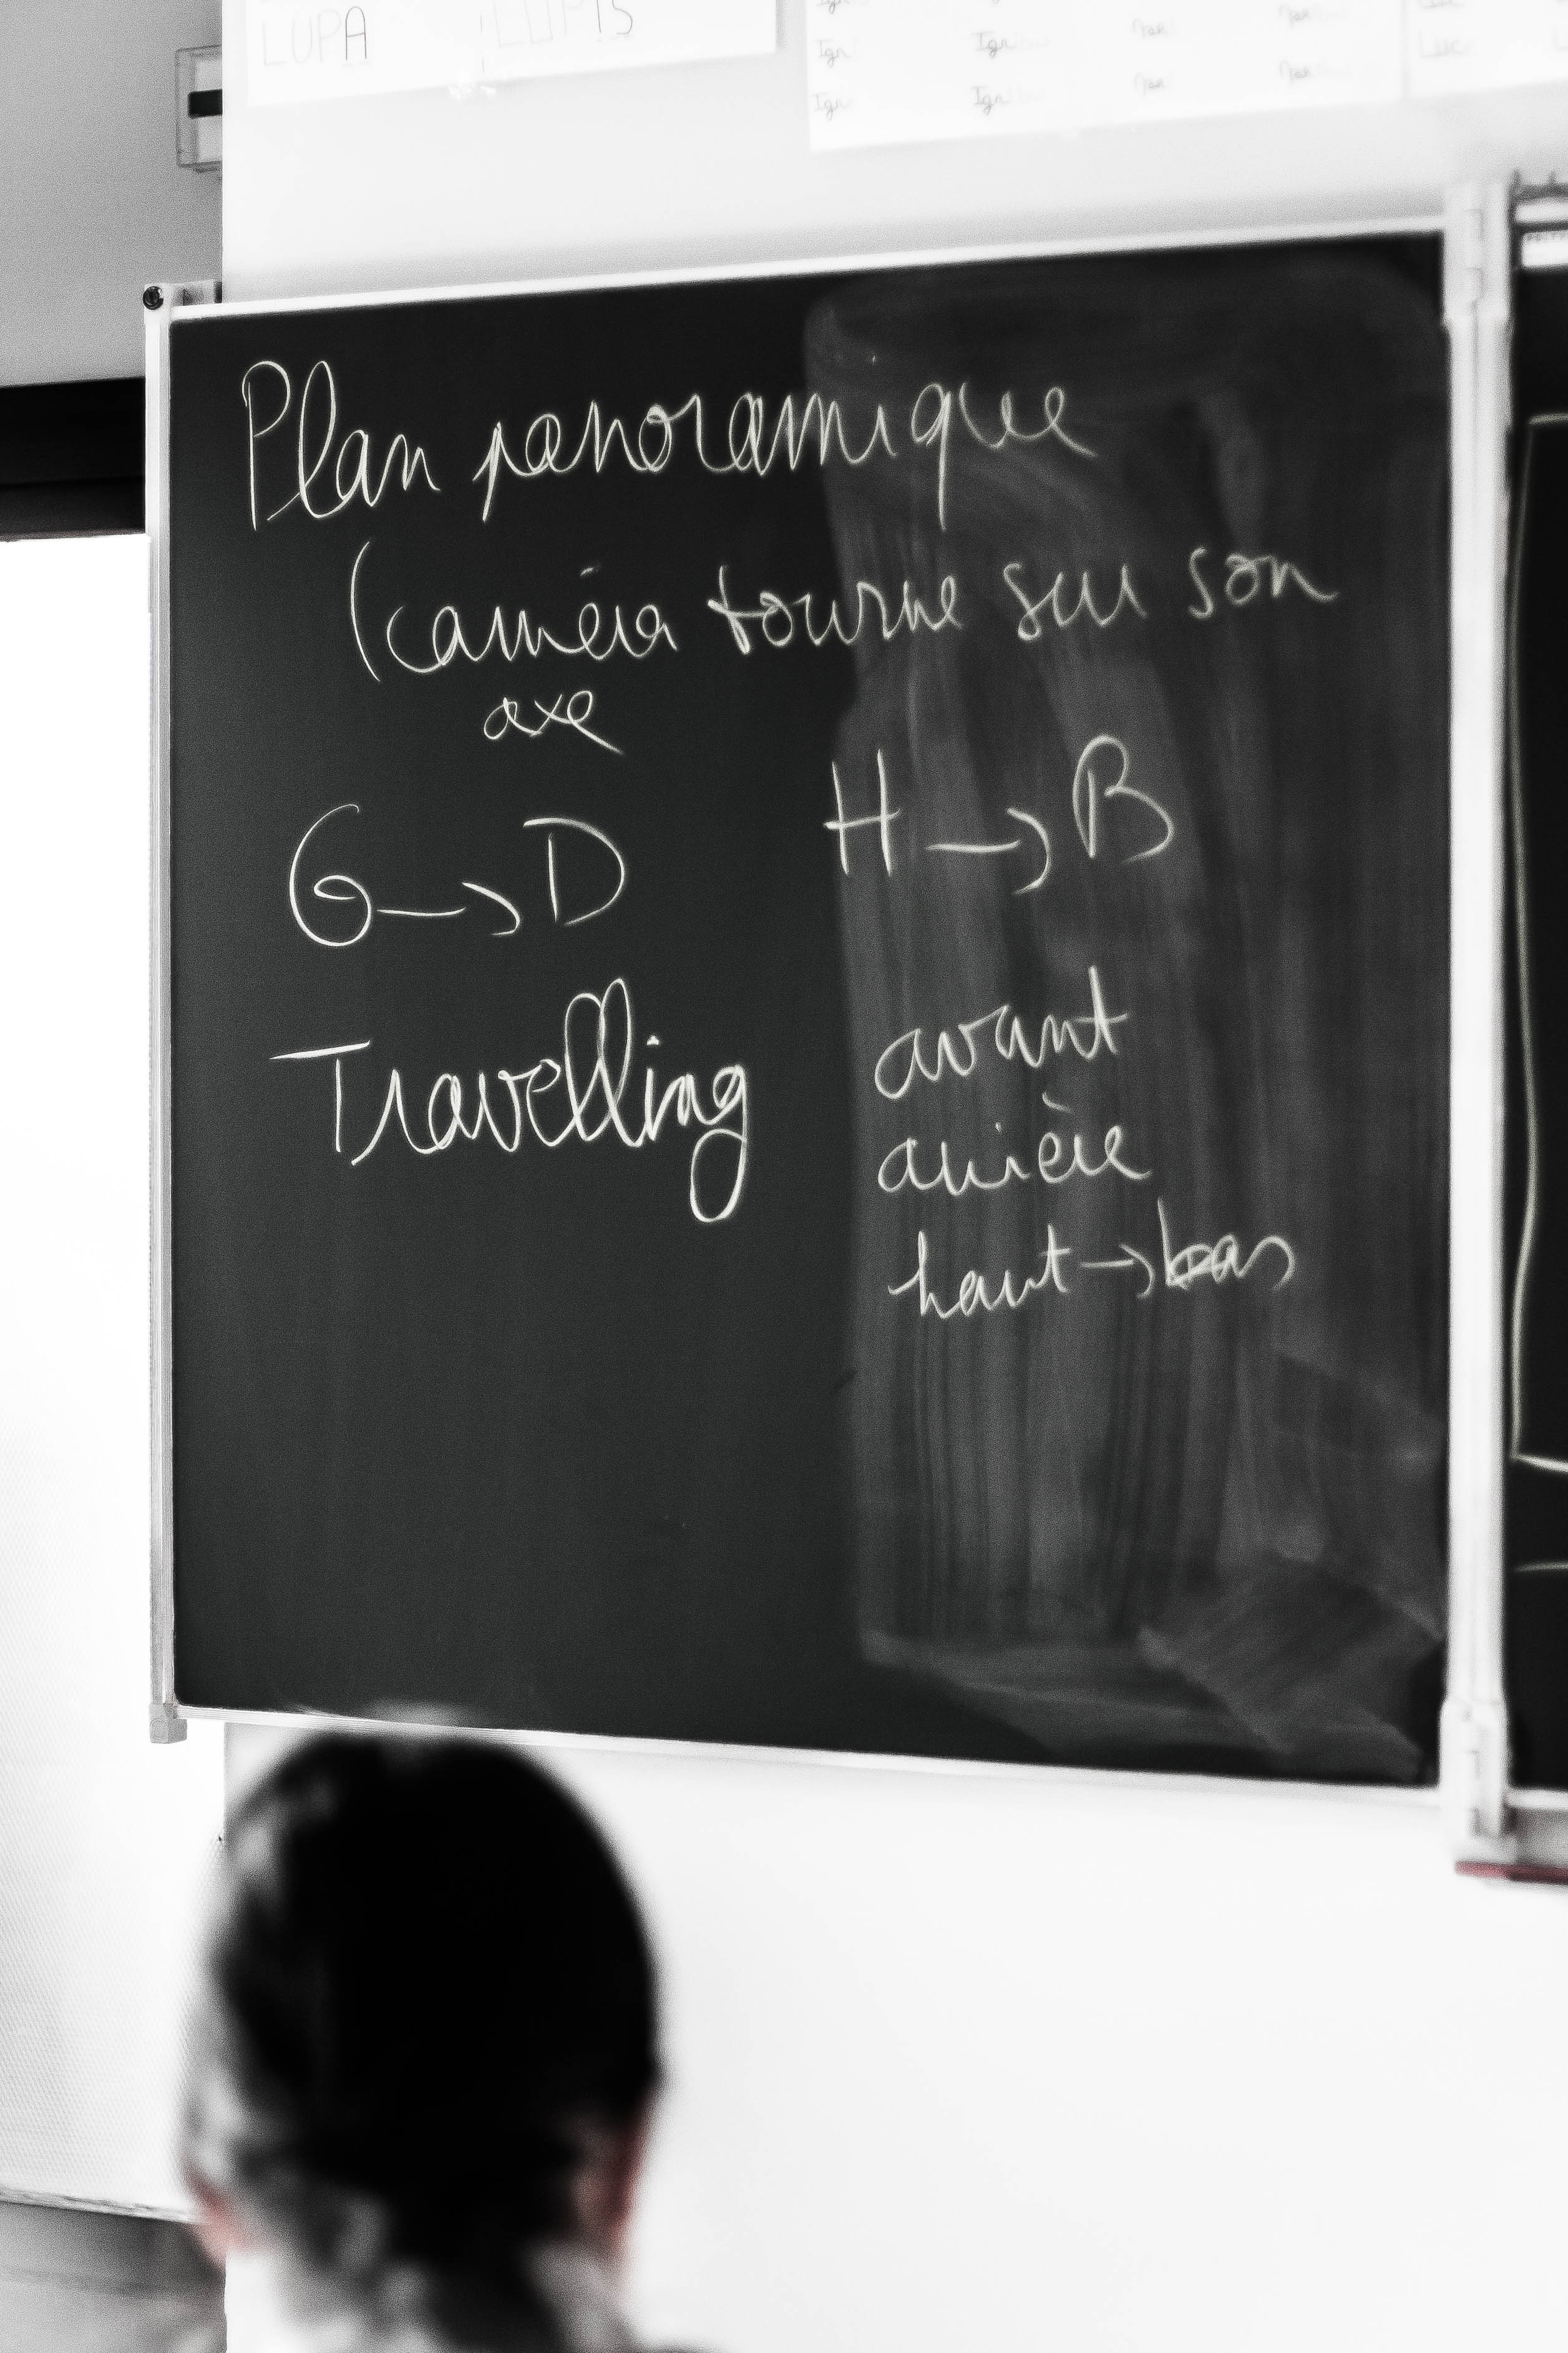 LUPA
Plan panoramique
(caméra tourne sur son
axe
G→D H→B
Travelling avant
arrière
haut→bas